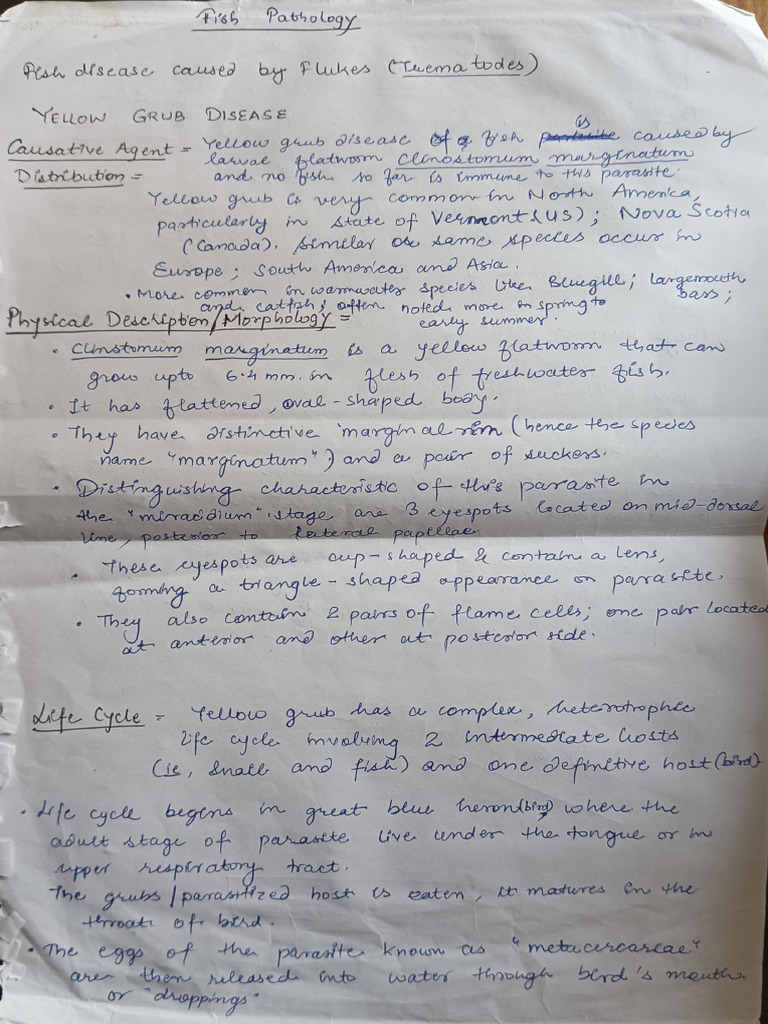 Fish Pathology
Fish disease caused by Flukes (Trematodes)
YELLOW GRUB DISEASE
Causative Agent = Yellow grub disease of a fish parasite is caused by
larval flatworm Clinostomum marginatum
and no fish so far is immune to this parasite.
Distribution =
Yellow grub is very common in North America,
particularly in state of Vermont (US); Nova Scotia
(Canada). Similar or same species occur in
Europe; South America and Asia.
• More common in warmwater species like Bluegill; largemouth bass;
and catfish; often noted more in spring to
early summer.
Physical Description/Morphology =
• Clinstomum marginatum is a yellow flatworm that can
grow upto 6.4 mm. in flesh of freshwater fish.
• It has flattened, oval-shaped body.
• They have distinctive marginal rim (hence the species
name "marginatum") and a pair of suckers.
• Distinguishing characteristic of this parasite in
the "miracidium" stage are 3 eyespots located on mid-dorsal
line, posterior to lateral papillae.
• These eyespots are cup-shaped & contain a lens,
forming a triangle-shaped appearance on parasite.
• They also contain 2 pairs of flame cells; one pair located
at anterior and other at posterior side.
Life Cycle = Yellow grub has a complex, heterotrophic
life cycle involving 2 intermediate hosts
(ie, snail and fish) and one definitive host (bird)
• Life cycle begins in great blue heron (bird) where the
adult stage of parasite live under the tongue or in
upper respiratory tract.
The grubs/parasitized host is eaten, it matures in the
throat of bird.
• The eggs of the parasite known as "metacercariae"
are then released into water through bird's mouth
or "droppings"